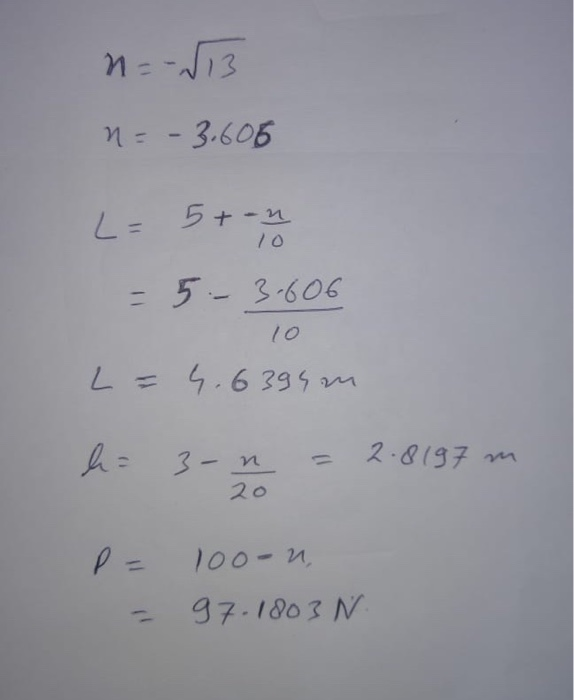 x = -√13
x = - 3.606
L = 5 + -x/10
= 5 - 3.606/10
L = 4.6394 m
h = 3 - x/20 = 2.8197 m
P = 100 - x
= 97.1803 N